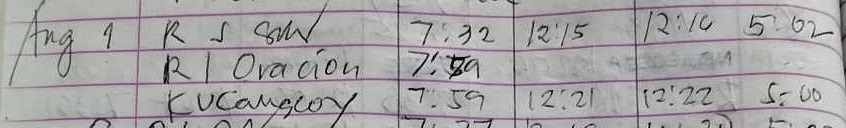 Aug 1 R J 7:32 12:15 12:16 5:02
R I Oracion 7:59
7:59 12:21 12:22 5:00